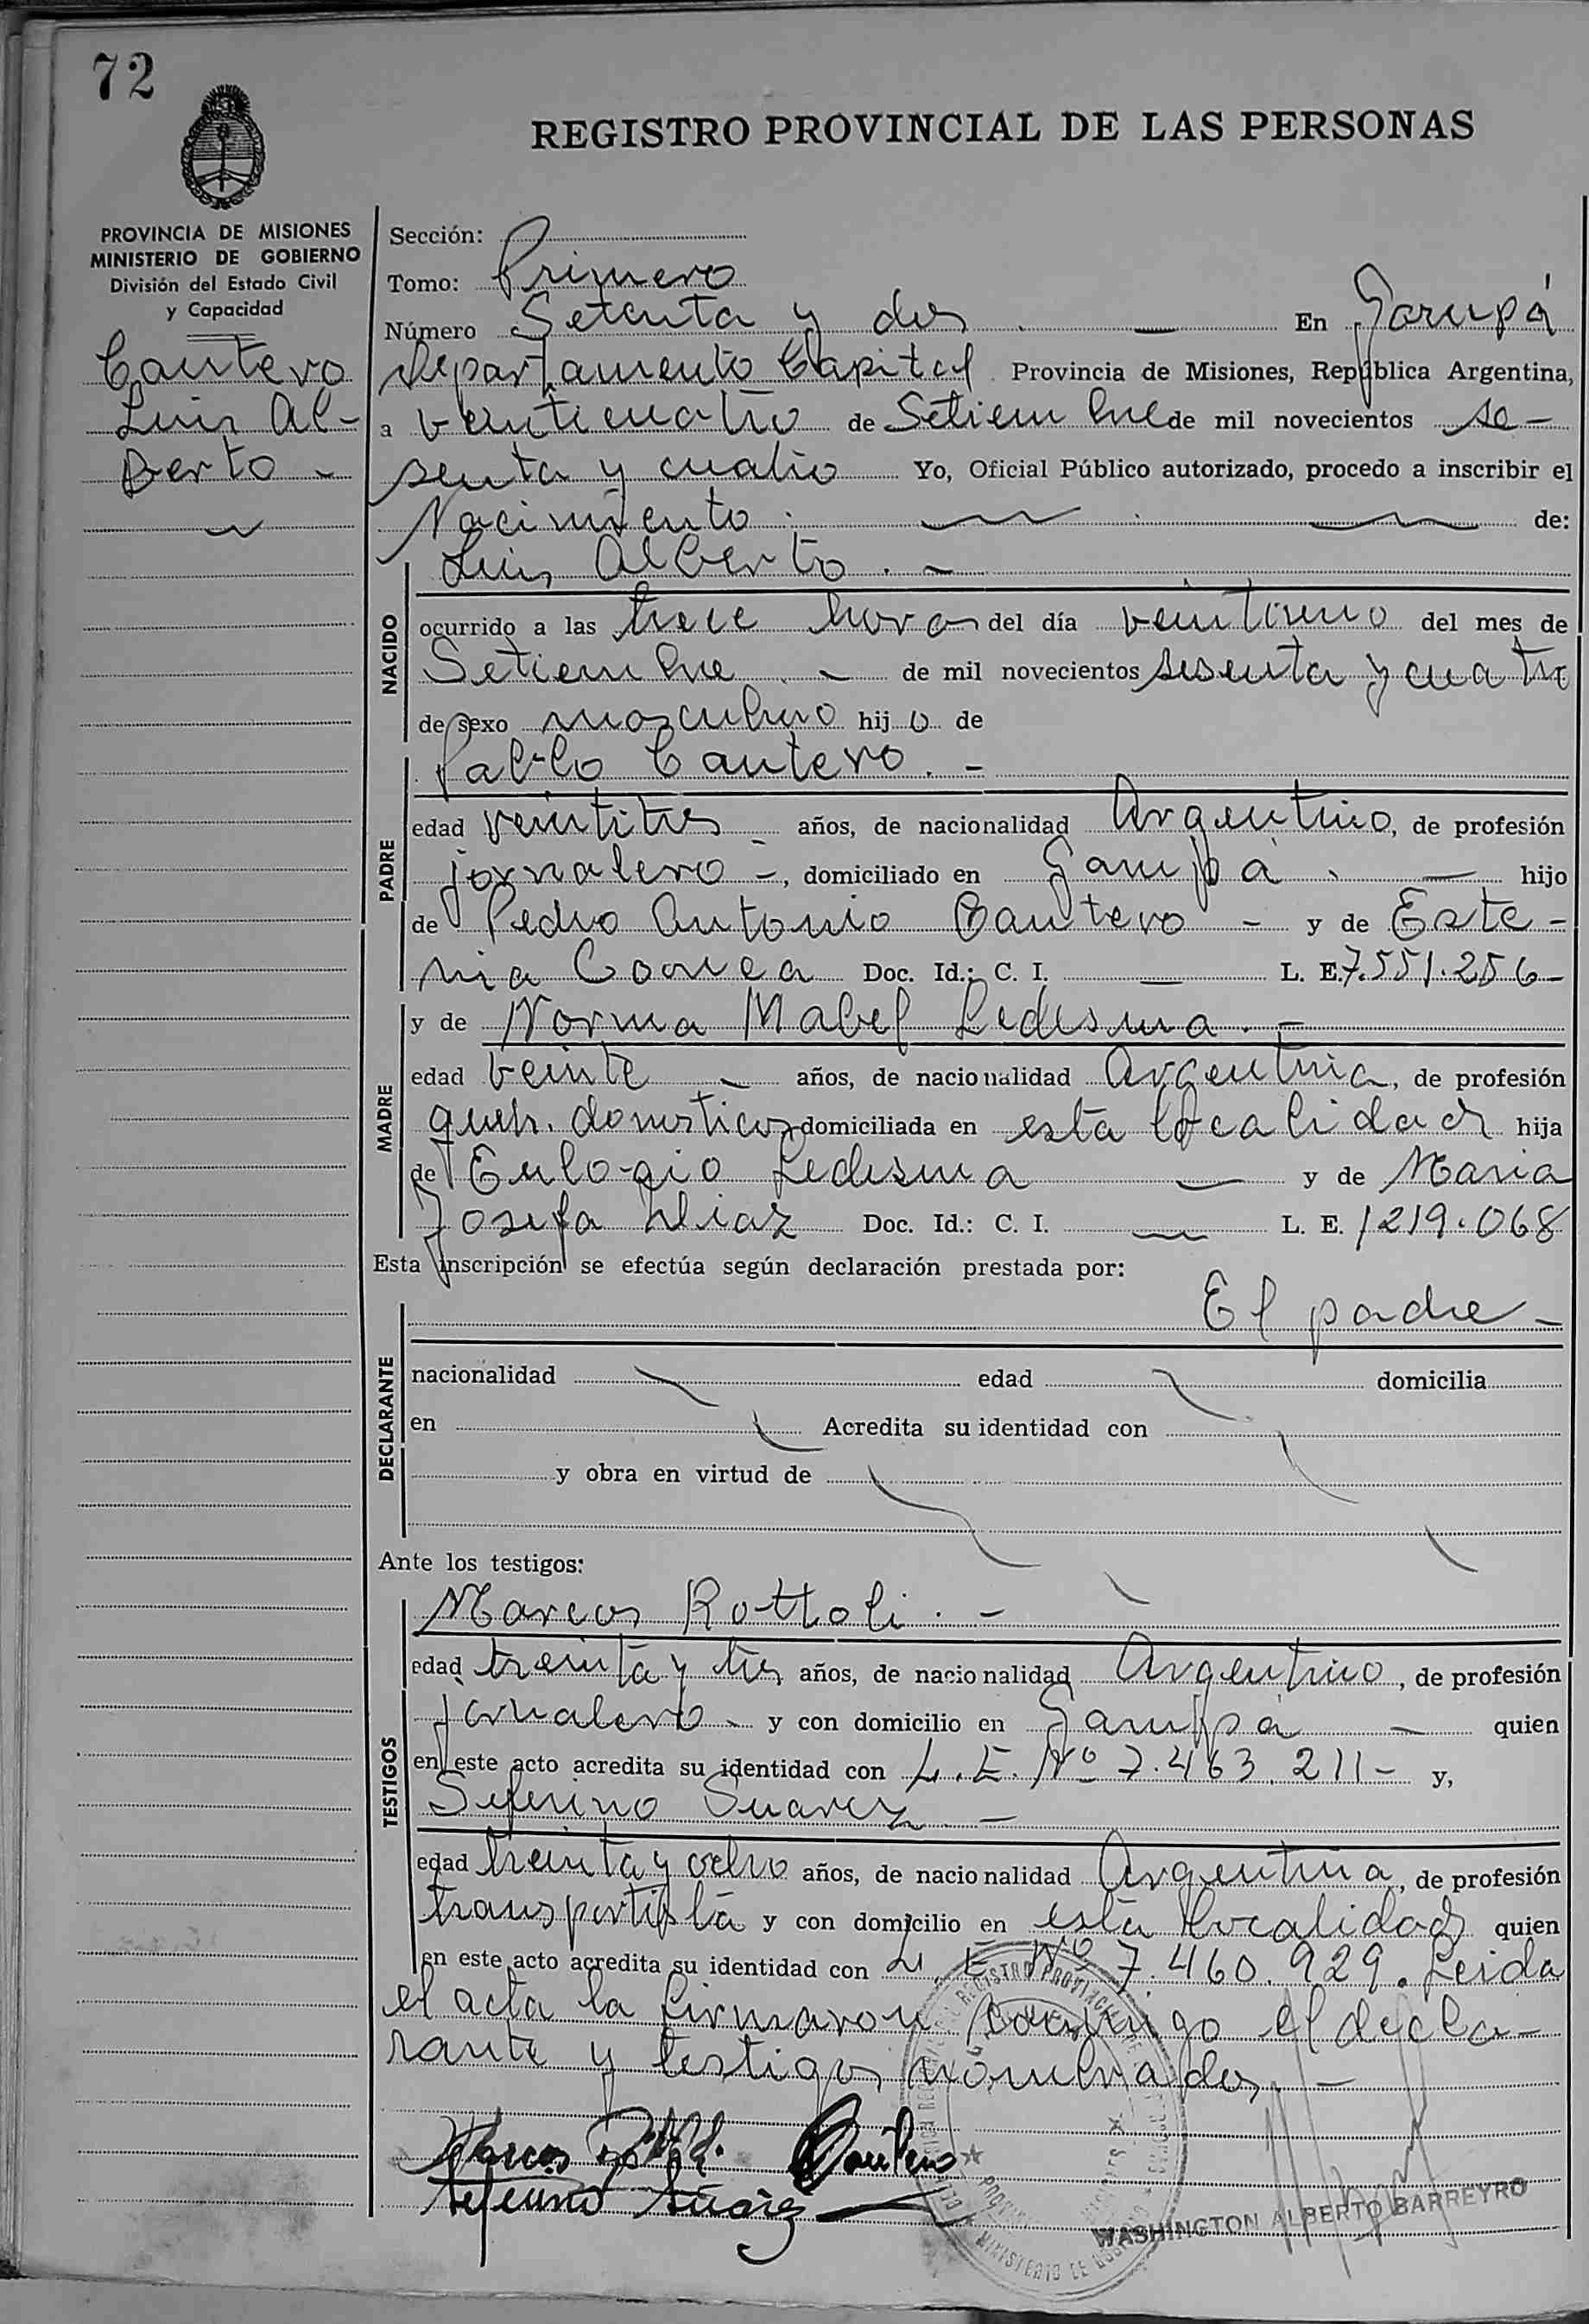 72
REGISTRO PROVINCIAL DE LAS PERSONAS
PROVINCIA DE MISIONES
MINISTERIO DE GOBIERNO
División del Estado Civil
y Capacidad
Cantero
Luis Al-
berto -
Sección:
Tomo: Primero
Número Setenta y dos — En Garupá
Departamento Capital Provincia de Misiones, República Argentina,
a veinticuatro de Setiembre de mil novecientos se-
senta y cuatro Yo, Oficial Público autorizado, procedo a inscribir el
Nacimiento . de:
Luis Alberto . -
NACIDO
ocurrido a las trece horas del día veintiuno del mes de
Setiembre - de mil novecientos sesenta y cuatro
de sexo masculino hijo de
Pablo Cantero . -
PADRE
edad veintitres - años, de nacionalidad Argentino, de profesión
jornalero -, domiciliado en Garupá . — hijo
de Pedro Antonio Cantero - y de Este-
nia Correa Doc. Id.: C. I. — L. E. 7.551.256-
MADRE
y de Norma Mabel Ledesma . -
edad veinte - años, de nacionalidad Argentina, de profesión
queh. domesticos domiciliada en esta localidad hija
de Eulogio Ledesma — y de Maria
Josefa Diaz Doc. Id.: C. I. — L. E. 1219.068
Esta inscripción se efectúa según declaración prestada por:
El padre -
DECLARANTE
nacionalidad edad domicilia
en Acredita su identidad con
y obra en virtud de
Ante los testigos:
Marcos Rottoli . -
TESTIGOS
edad treinta y tres años, de nacionalidad Argentino, de profesión
Jornalero - y con domicilio en Garupá — quien
en este acto acredita su identidad con L. E. Nº 7.463.211- y,
Seferino Suarez -
edad treinta y ocho años, de nacionalidad Argentina, de profesión
transportista y con domicilio en esta localidad quien
en este acto acredita su identidad con L. E. Nº 7.460.929. Leida
el acta la firmaron conmigo el decla-
rante y testigos nombrados. -
Marcos Rottoli. Cantero
Seferino Suarez
WASHINGTON ALBERTO BARREYRO